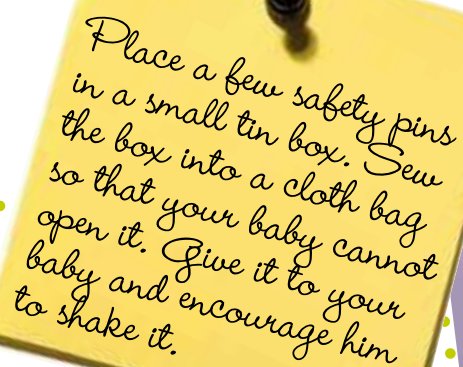 Place a few safety pins
in a small tin box. Sew
the box into a cloth bag
so that your baby cannot
open it. Give it to your
baby and encourage him
to shake it.